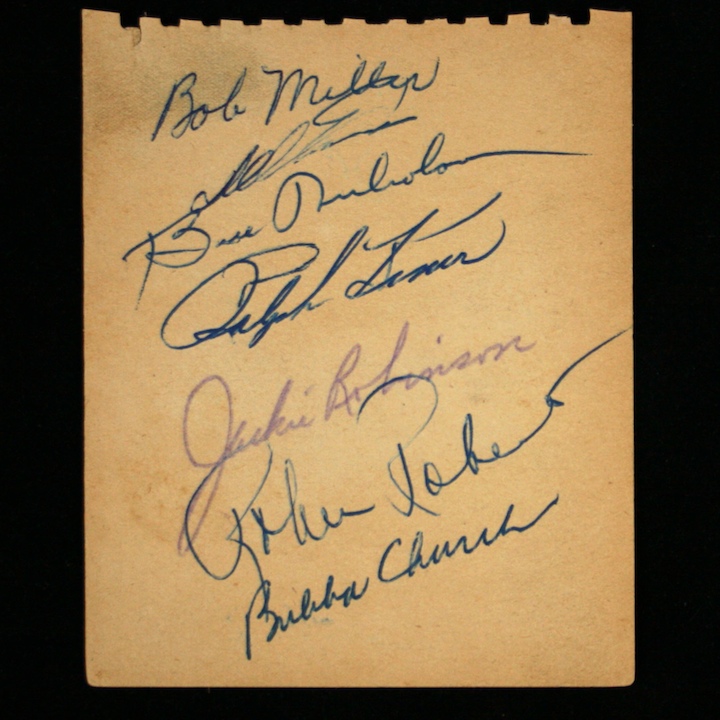 Bob Miller
Bill Nicholson
Ralph Kiner
Jackie Robinson
Robin Roberts
Bubba Church